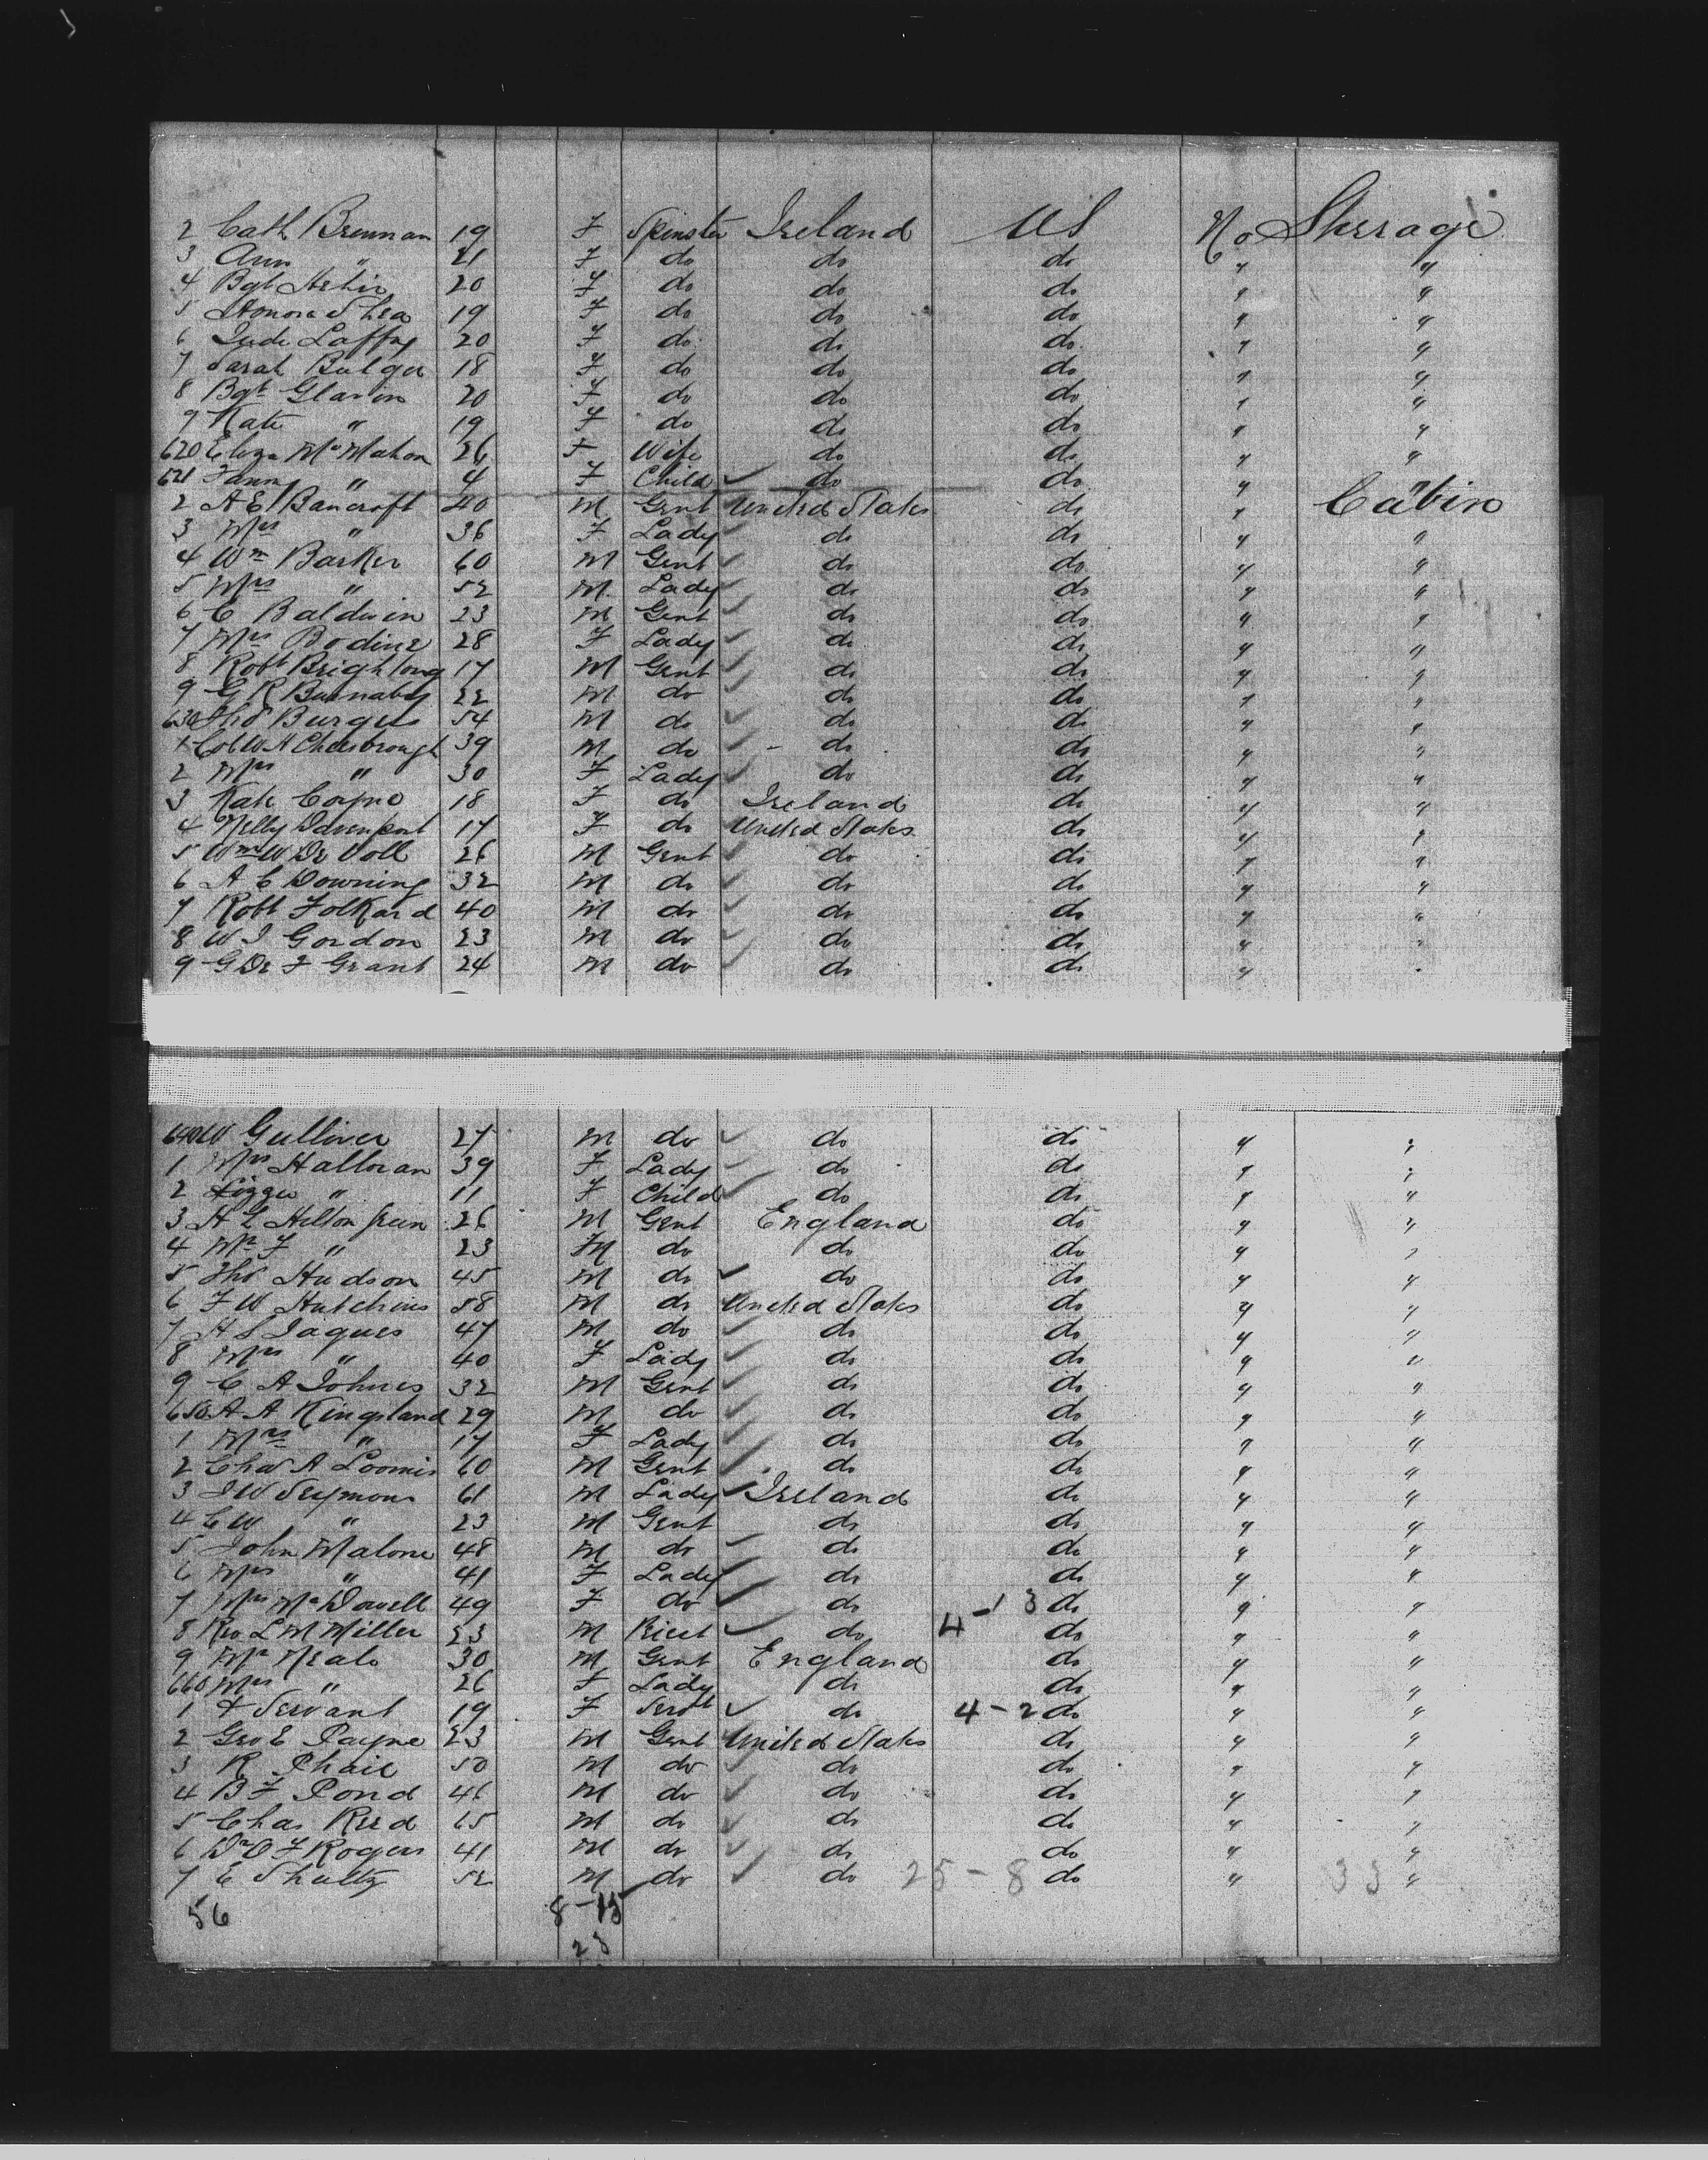 2 Cath Brennan 19 F Spinster Ireland US No Sterrage
3 Ann " 21 F do do do " "
4 Bgt 20 F do do do " "
5 Honora Shea 19 F do do do " "
6 Jude Laffey 20 F do do do " "
7 Sarah Bulger 18 F do do do " "
8 Bgt Glavin 20 F do do do " "
9 Kate " 19 F do do do " "
620 Eliza McMahon 26 F Wife do do " "
621 Fanny " 4 F Child do do " "
2 A E Bancroft 40 M Gent United States do " Cabin
3 Mrs " 36 F Lady do do " "
4 Wm Barker 60 M Gent do do " "
5 Mrs " 52 M Lady do do " "
6 C Baldwin 23 M Gent do do " "
7 Mrs Bodine 28 F Lady do do " "
8 Robt Brightong 17 M Gent do do " "
9 G R Burnaby 22 M do do do " "
630 Thos Burgess 54 M do do do " "
1 Col W H Chesbrough 39 M do do do " "
2 Mrs " 30 F Lady do do " "
3 Kate Coyne 18 F do Ireland do " "
4 Nelly Davenport 17 F do United States do " "
5 Wm W De Voll 26 M Gent do do " "
6 A C Downing 32 M do do do " "
7 Robt Folkard 40 M do do do " "
8 W J Gordon 23 M do do do " "
9 G De F Grant 24 M do do do " "
640 W Gulliver 27 M do do do " "
1 Mrs Halloran 39 F Lady do do " "
2 Lizzie " 11 F Child do do " "
3 H L Hilton Green 26 M Gent England do " "
4 Mr F " 23 M do do do " "
5 Thos Hudson 45 M do do do " "
6 F W Hutchins 58 M do United States do " "
7 H S Jaques 47 M do do do " "
8 Mrs " 40 F Lady do do " "
9 C A Johnes 32 M Gent do do " "
650 A A Kingsland 29 M do do do " "
1 Mrs " 17 F Lady do do " "
2 Chas A Loomis 60 M Gent do do " "
3 J W Seymour 61 M Lady Ireland do " "
4 C W " 23 M Gent do do " "
5 John Malone 48 M do do do " "
6 Mrs " 41 F Lady do do " "
7 Mrs McDowell 49 F do do 4-13 do " "
8 Rev L M Miller 23 M Priest do do " "
9 Mr Neale 30 M Gent England do " "
660 Mrs " 26 F Lady do do " "
1 & Servant 19 F Servt do 4-2 do " "
2 Geo E Payne 23 M Gent United States do " "
3 R Phair 50 M do do do " "
4 B F Pond 46 M do do do " "
5 Chas Reed 65 M do do do " "
6 Dr O F Rogers 41 M do do do " "
7 E Shultz 52 M do do 25-8 do " 33 "
56 8-15
23